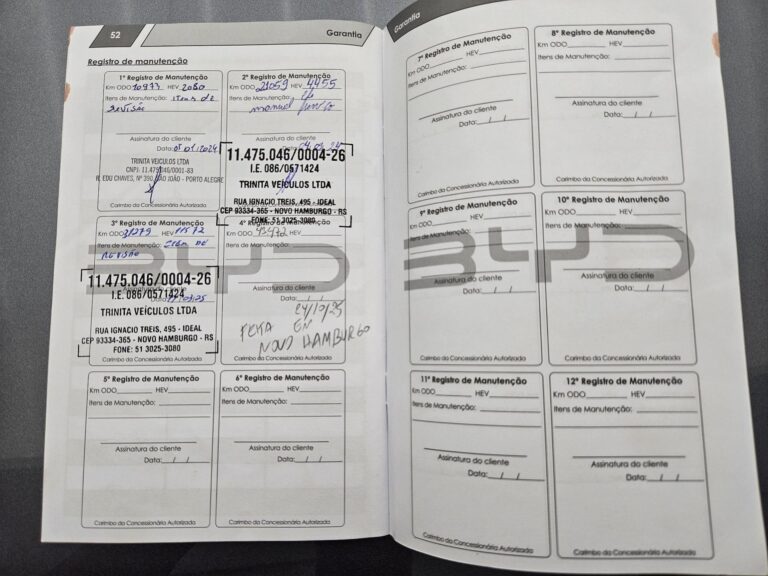 52
Garantia
Registro de manutenção
1º Registro de Manutenção
Km ODO 10973 HEV 2080
Itens de Manutenção: itens de
revisão
Assinatura do cliente
Data: 01/2024
TRINITA VEICULOS LTDA
CNPJ: 11.475.046/0001-83
R. EDU CHAVES, Nº 390 SÃO JOÃO - PORTO ALEGRE
Carimbo da Concessionária Autorizada
2º Registro de Manutenção
Km ODO 21059 HEV 4455
Itens de Manutenção:
manual
11.475.046/0004-26
I.E. 086/0571424
TRINITA VEÍCULOS LTDA
RUA IGNACIO TREIS, 495 - IDEAL
CEP 93334-365 - NOVO HAMBURGO - RS
FONE: 51 3025-3080
3º Registro de Manutenção
Km ODO 31279 HEV
Itens de Manutenção: item de
revisão
Assinatura do cliente
Data:
11.475.046/0004-26
I.E. 086/0571424
TRINITA VEÍCULOS LTDA
RUA IGNACIO TREIS, 495 - IDEAL
CEP 93334-365 - NOVO HAMBURGO - RS
FONE: 51 3025-3080
Carimbo da Concessionária Autorizada
4º Registro de Manutenção
Km ODO HEV
Itens de Manutenção:
Assinatura do cliente
Data:
24/10/25
FEITA EM
NOVO HAMBURGO
Carimbo da Concessionária Autorizada
5º Registro de Manutenção
Km ODO HEV
Itens de Manutenção:
Assinatura do cliente
Data: / /
Carimbo da Concessionária Autorizada
6º Registro de Manutenção
Km ODO HEV
Itens de Manutenção:
Assinatura do cliente
Data: / /
Carimbo da Concessionária Autorizada
BYD
Garantia
7º Registro de Manutenção
Km ODO HEV
Itens de Manutenção:
Assinatura do cliente
Data: / /
Carimbo da Concessionária Autorizada
8º Registro de Manutenção
Km ODO HEV
Itens de Manutenção:
Assinatura do cliente
Data: / /
Carimbo da Concessionária Autorizada
9º Registro de Manutenção
Km ODO HEV
Itens de Manutenção:
Assinatura do cliente
Data: / /
Carimbo da Concessionária Autorizada
10º Registro de Manutenção
Km ODO HEV
Itens de Manutenção:
Assinatura do cliente
Data: / /
Carimbo da Concessionária Autorizada
11º Registro de Manutenção
Km ODO HEV
Itens de Manutenção:
Assinatura do cliente
Data: / /
Carimbo da Concessionária Autorizada
12º Registro de Manutenção
Km ODO HEV
Itens de Manutenção:
Assinatura do cliente
Data: / /
Carimbo da Concessionária Autorizada
BYD